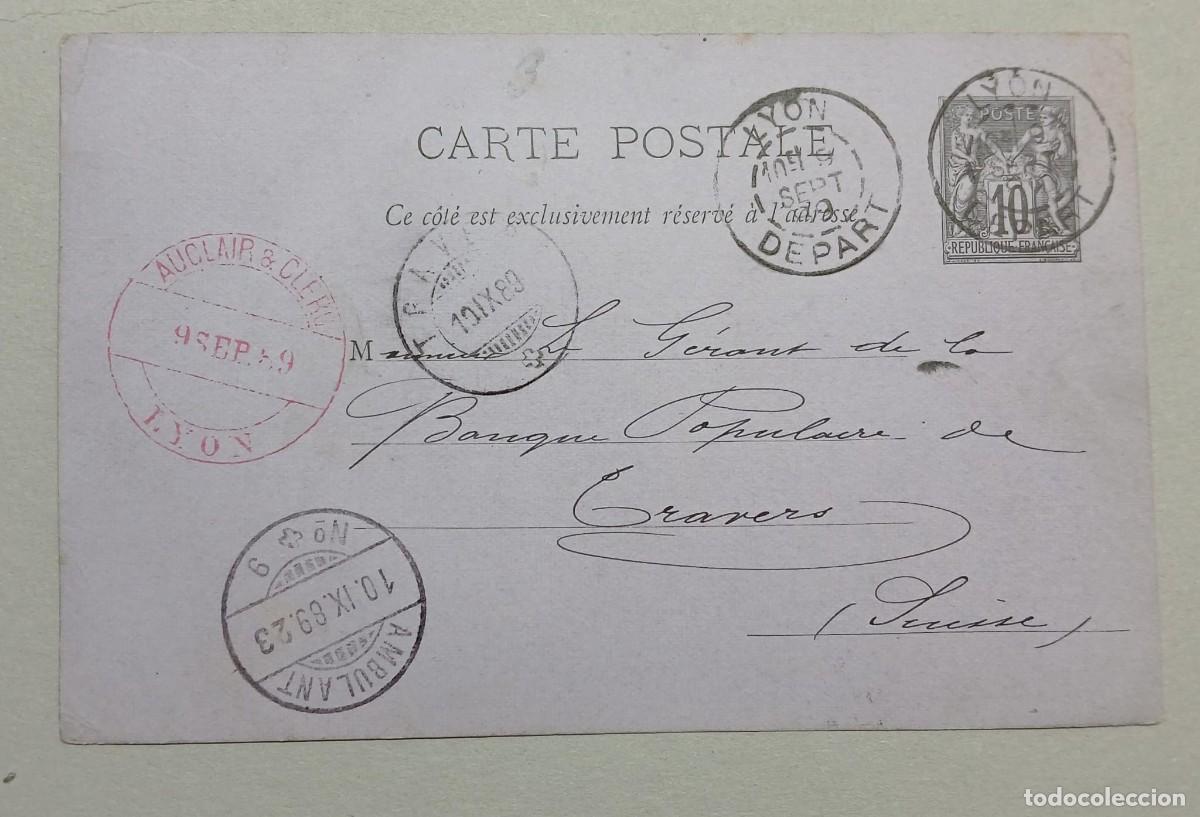 CARTE POSTALE
Ce côté est exclusivement réservé à l'adresse
LYON
SEPT
DEPART
LYON
POSTE
10
REPUBLIQUE FRANÇAISE
AUCLAIR & CLERC
9 SEP. 89
LYON
10 IX 89
Monsieur Le Gérant de la
Banque Populaire de
Travers
(Suisse)
No 9
10.IX.89.23
AMBULANT
todocoleccion